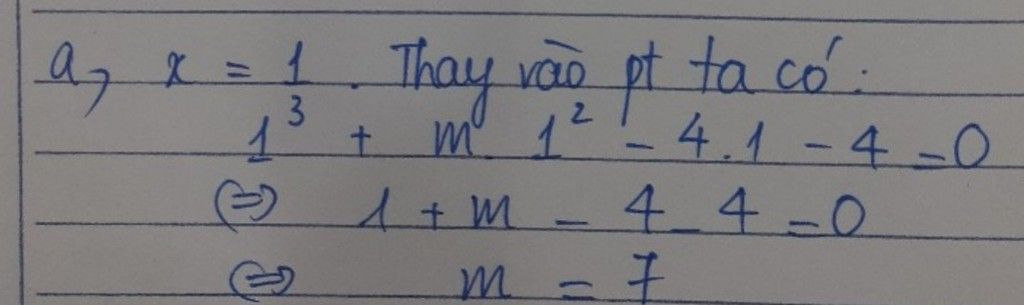 a, x = 1. Thay vào pt ta có:
1³ + m 1² - 4.1 - 4 = 0
⇔ 1 + m - 4 - 4 = 0
⇔ m = 7